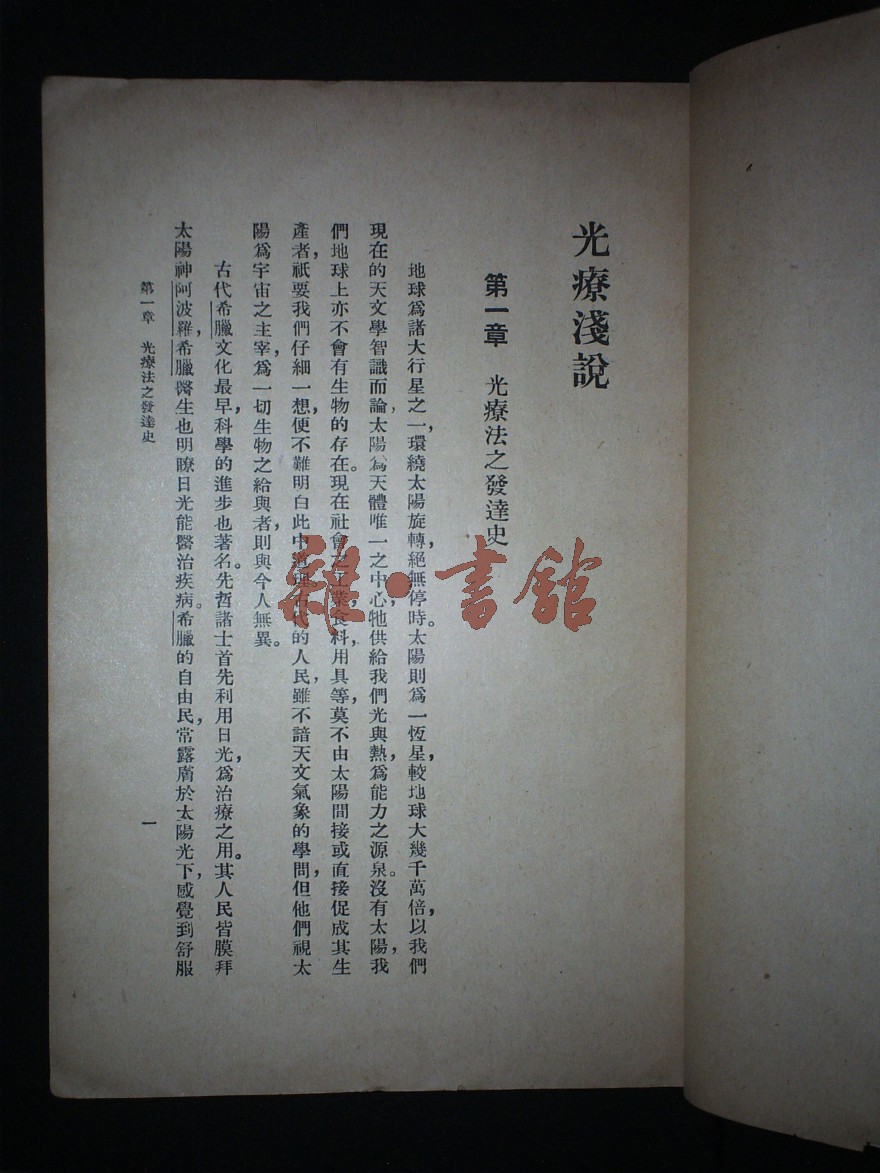 光療淺說
第一章　光療法之發達史
地球爲諸大行星之一，環繞太陽旋轉，絕無停時。太陽則爲一恆星，較地球大幾千萬倍，以我們
現在的天文學智識而論，太陽爲天體唯一之中心，牠供給我們光與熱，爲能力之源泉。沒有太陽，我
們地球上亦不會有生物的存在。現在社會之工業，食料，用具等，莫不由太陽間接或直接促成其生
產者，祇要我們仔細一想，便不難明白此中道理。古代的人民，雖不諳天文氣象的學問，但他們視太
陽爲宇宙之主宰，爲一切生物之給與者，則與今人無異。
古代希臘文化最早，科學的進步也著名。先哲諸士首先利用日光，爲治療之用。其人民皆膜拜
太陽神阿波羅，希臘醫生也明瞭日光能醫治疾病。希臘的自由民，常露膚於太陽光下，感覺到舒服
第一章　光療法之發達史
一
雜·書館